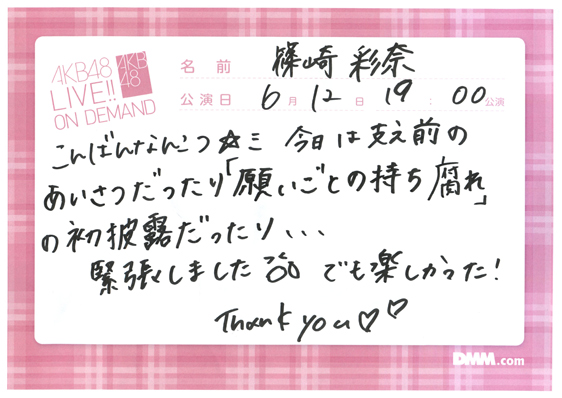 AKB48
LIVE!!
ON DEMAND
AKB
48
名前 篠崎 彩奈
公演日 6月 12日 19:00公演
こんばんなんこつ☆ミ 今日は支え前の
あいさつだったり「願いごとの持ち腐れ」
の初披露だったり、、、
緊張しました でも楽しかった!
Thank you♡♡
DMM.com